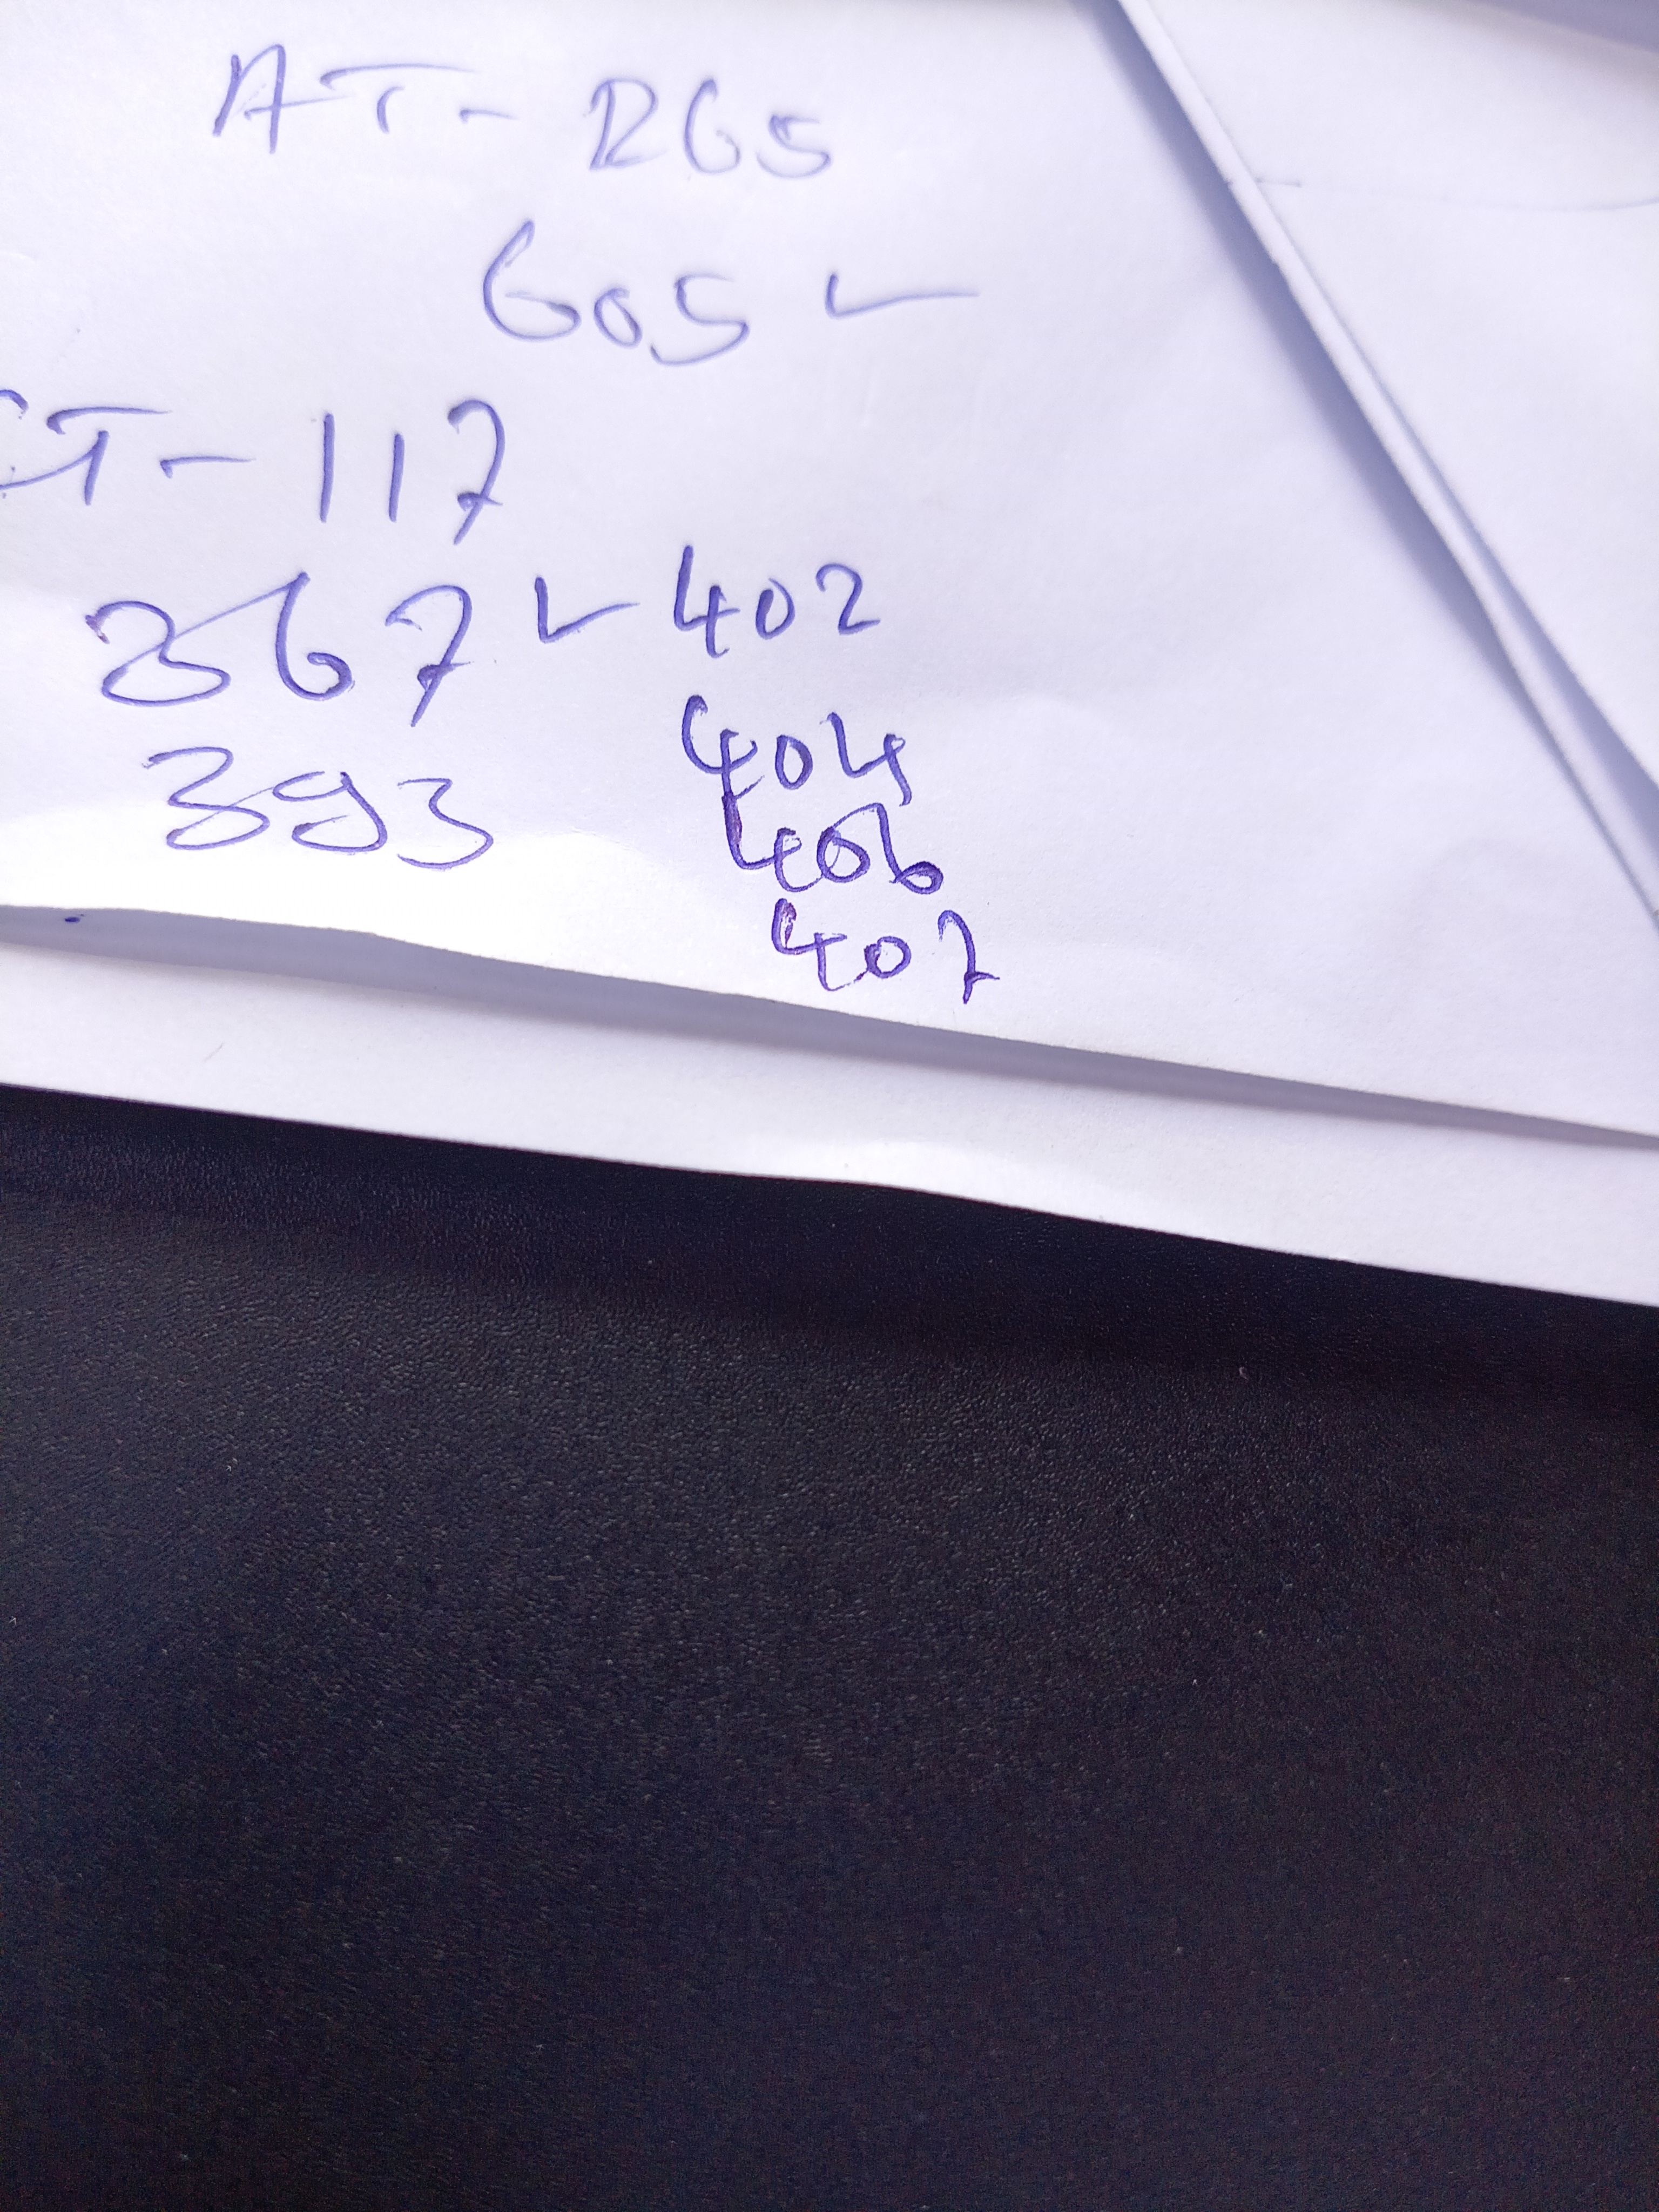 AT - 265
605 ✓
CT - 117
367 ✓ 402
404
393
406
407